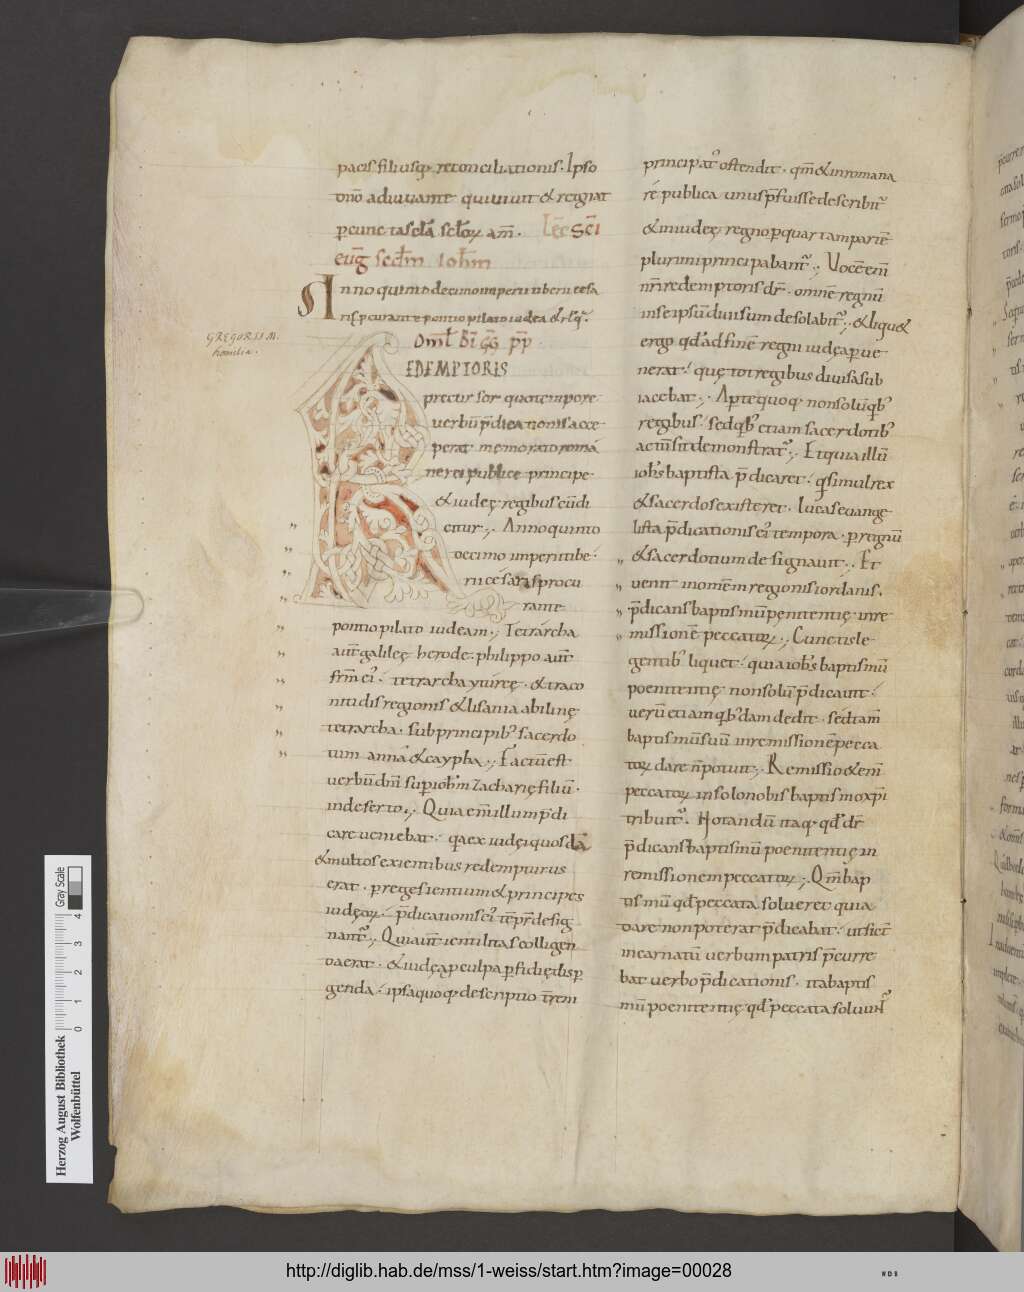 pacis filiusq; reconciliationis. Ipso
dno adiuuante qui uiuit & regnat
p cuncta sclā sclōꝝ am̄. Lēc Sc̄i
eūg secdm iohm
Anno quinto decimo imperii tiberii cesa
ris, pcurante pontio pilato iudea & rlq̄.
GREGORII M.
homilia.
Omel Bi GG pp
REDEMPTORIS
precursor quo tempore
uerbū p̄dicationis acce
perat memorato romā
ne rei publice principe
& iudeę regibus eūdi
citur; Anno quinto
decimo imperii tibe
rii cesaris procu
rante
pontio pilato iudeam; Tetrarcha
aut galileę herode. philippo aut̄
frm ei'. tetrarcha ytureę. & traco
nitidis regionis & lisania abilinę
tetrarcha. sub principib; sacerdo
tum anna & caypha; Factū est
uerbū dn̄i sup iohm zacharię filiū.
in deserto; Quia em̄ illum p̄di
care ueniebat. q̄a ex iudęi quosdā
& multos ex gentibus redempturus
erat. p reges gentium & principes
iudęoꝝ. p̄dicationis ei' tēpr̄ desig
nant'; Quia aūt gentilitas colligen
da erat. & iudęa p culpa pfidię disp
genda. ipsa quoq; descriptio t̄rem
principat' ostendit. qm̄ & in romana
rē publica unus p̄fuisse describit'
& in iudeę regno p quartam partē
plurimi principabant'; Uoce em̄
nr̄i redemptoris dr̄. omne regnū
in se ipsū diuisum desolabit'; & liqu&
ergo qd̄ ad finē regni iudęa p ue
nerat. quę tot regibus diuisa sub
iacebat; Aperte quoq; non solū qb;
regibus. sed qb; etiam sacerdotib;
actū sit demonstrat'; Et quia illū
iohs baptista p̄dicaret. q̄ simul rex
& sacerdos existeret. lucas euange
lista p̄dicationis ei' tempora. p regnū
& sacerdotium designauit; Et
uenit in omēm regionis iordanis.
p̄dicans baptismū penitentię in re
missione peccatoꝝ; Cunctis le
gentib; liquet. quia iohs baptismū
poenitentię non solū p̄dicauit.
uerū etiam qb; dam dedit. sed tam̄
baptismū suū in remissionē pecca
toꝝ dare n̄ potuit; Remissio & em̄
peccatoꝝ in solo nobis baptismo xp̄i
tribuit'. Notandū itaq; qd̄ dr̄
p̄dicans baptismū poenitentię in
remissionem peccatoꝝ; Qm̄ bap
tismū qd̄ peccata solueret quia
dare non poterat p̄dicabat. ut sicut
incarnatū uerbum patris p̄curre
bat uerbo p̄dicationis. ita baptis
mū poenitentię qd̄ peccata soluunt'
Herzog August Bibliothek
Wolfenbüttel
0 1 2 3 4
Gray Scale
http://diglib.hab.de/mss/1-weiss/start.htm?image=00028